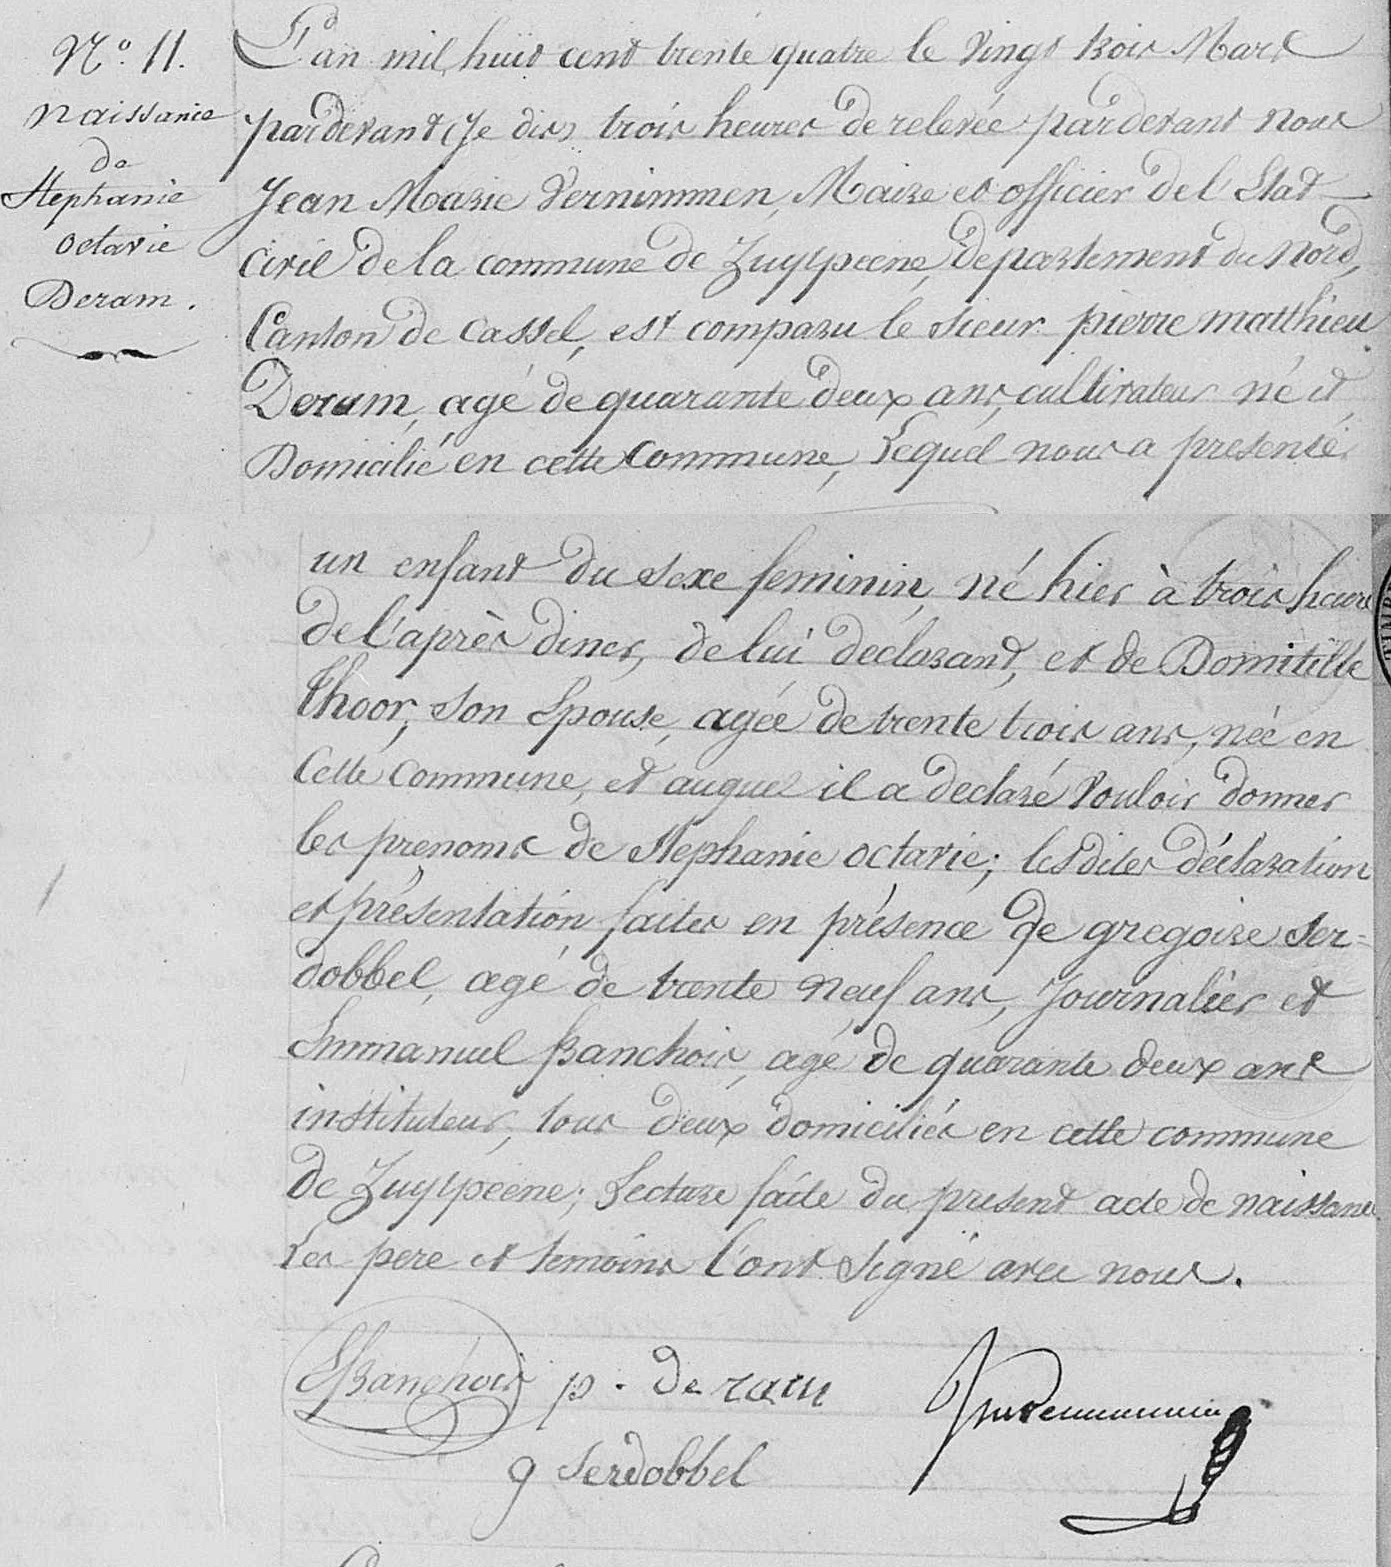 N.° 11.
Naissance
de
Stephanie
octavie
Deram.
L'an mil huit cent trente quatre le vingt trois Mars
pardevant (je dis) trois heures de relevée pardevant nous
Jean Marie Vernimmen, Maire et officier de l'Etat
civil de la commune de Zuytpeene, département du Nord,
Canton de Cassel, est comparu le sieur pierre matthieu
Deram, agé de quarante deux ans, cultivateur né et
Domicilié en cette Commune, Lequel nous a presenté
un enfant du sexe feminin, né hier à trois heures
de l'après diner, de lui déclarant, et de Domitille
Thoor, son Epouse, agée de trente trois ans, née en
Cette Commune, et auquel il a déclaré vouloir donner
les prenoms de Stephanie octavie; lesdites déclaration
et présentation faites en présence de gregoire Ser=
dobbel, agé de trente neuf ans, journalier et
Emmanuel Banchoir, agé de quarante deux ans
instituteur, tous deux domiciliés en cette commune
de Zuytpeene; Lecture faite du present acte de naissance
Les pere et temoins l'ont signé avec nous.
EBanchoir p. de ram
g Serdobbel